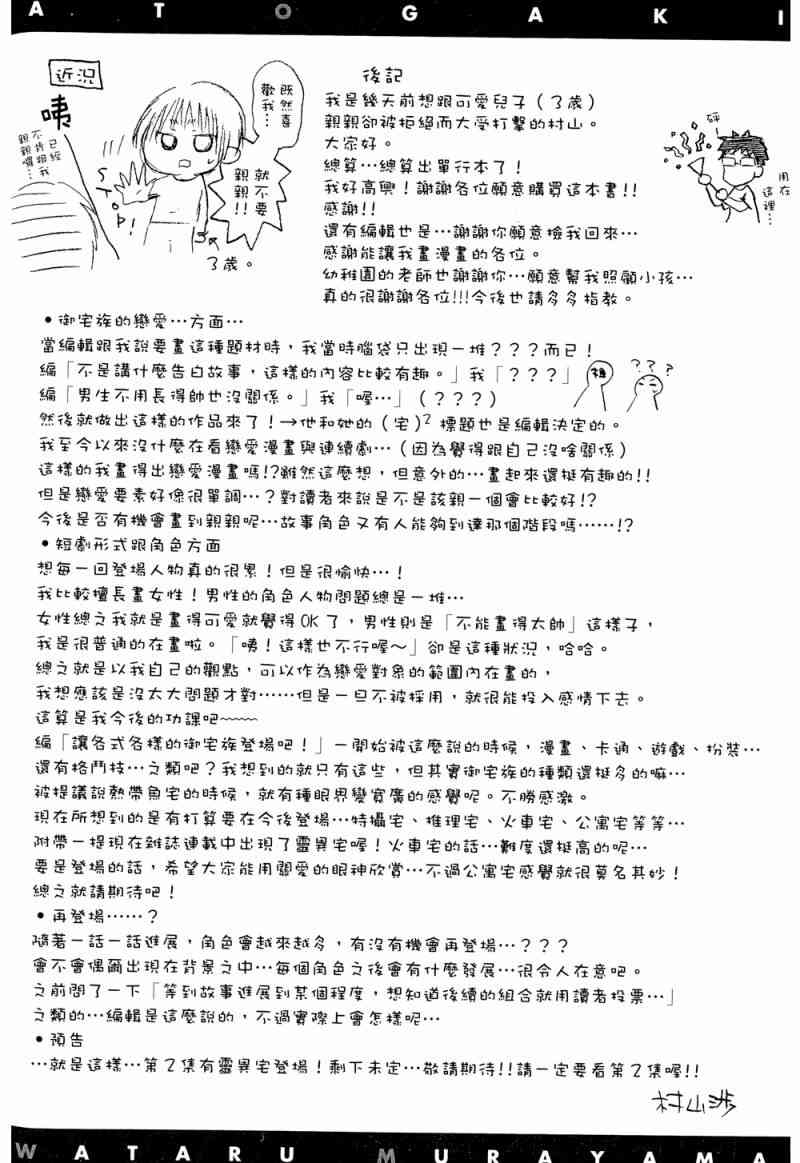 ATOGAKI
近況
咦
已經
不肯跟我
親親囉…
STOP!
既然喜
歡我…
就不要
親親!!
3歲。
後記
我是幾天前想跟可愛兒子(3歲)
親親卻被拒絕而大受打擊的村山。
大家好。
總算…總算出單行本了!
我好高興!謝謝各位願意購買這本書!!
感謝!!
還有編輯也是…謝謝你願意撿我回來…
感謝能讓我畫漫畫的各位。
幼稚園的老師也謝謝你…願意幫我照顧小孩…
真的很謝謝各位!!!今後也請多多指教。
砰
用在
這裡…
•御宅族的戀愛…方面…
當編輯跟我說要畫這種題材時,我當時腦袋只出現一堆???而已!
編「不是講什麼告白故事,這樣的內容比較有趣。」我「???」
編「男生不用長得帥也沒關係。」我「喔…」(???)
編
???
然後就做出這樣的作品來了!→他和她的(宅)2 標題也是編輯決定的。
我至今以來沒什麼在看戀愛漫畫與連續劇…(因為覺得跟自己沒啥關係)
這樣的我畫得出戀愛漫畫嗎!?雖然這麼想,但意外的…畫起來還挺有趣的!!
但是戀愛要素好像很單調…?對讀者來說是不是該親一個會比較好!?
今後是否有機會畫到親親呢…故事角色又有人能夠到達那個階段嗎……!?
•短劇形式跟角色方面
想每一回登場人物真的很累!但是很愉快…!
我比較擅長畫女性!男性的角色人物問題總是一堆…
女性總之我就是畫得可愛就覺得OK了,男性則是「不能畫得太帥」這樣子,
我是很普通的在畫啦。「咦!這樣也不行喔~」卻是這種狀況,哈哈。
總之就是以我自己的觀點,可以作為戀愛對象的範圍內在畫的,
我想應該是沒太大問題才對……但是一旦不被採用,就很能投入感情下去。
這算是我今後的功課吧~~~~
編「讓各式各樣的御宅族登場吧!」一開始被這麼說的時候,漫畫、卡通、遊戲、扮裝…
還有格鬥技…之類吧?我想到的就只有這些,但其實御宅族的種類還挺多的嘛…
被提議說熱帶魚宅的時候,就有種眼界變寬廣的感覺呢。不勝感激。
現在所想到的是有打算要在今後登場…特攝宅、推理宅、火車宅、公寓宅等等…
附帶一提現在雜誌連載中出現了靈異宅喔!火車宅的話…難度還挺高的呢…
要是登場的話,希望大家能用關愛的眼神欣賞…不過公寓宅感覺就很莫名其妙!
總之就請期待吧!
•再登場……?
隨著一話一話進展,角色會越來越多,有沒有機會再登場…???
會不會偶爾出現在背景之中…每個角色之後會有什麼發展…很令人在意吧。
之前問了一下「等到故事進展到某個程度,想知道後續的組合就用讀者投票…」
之類的…編輯是這麼說的,不過實際上會怎樣呢…
•預告
…就是這樣…第2集有靈異宅登場!剩下未定…敬請期待!!請一定要看第2集喔!!
村山渉
WATARU MURAYAMA